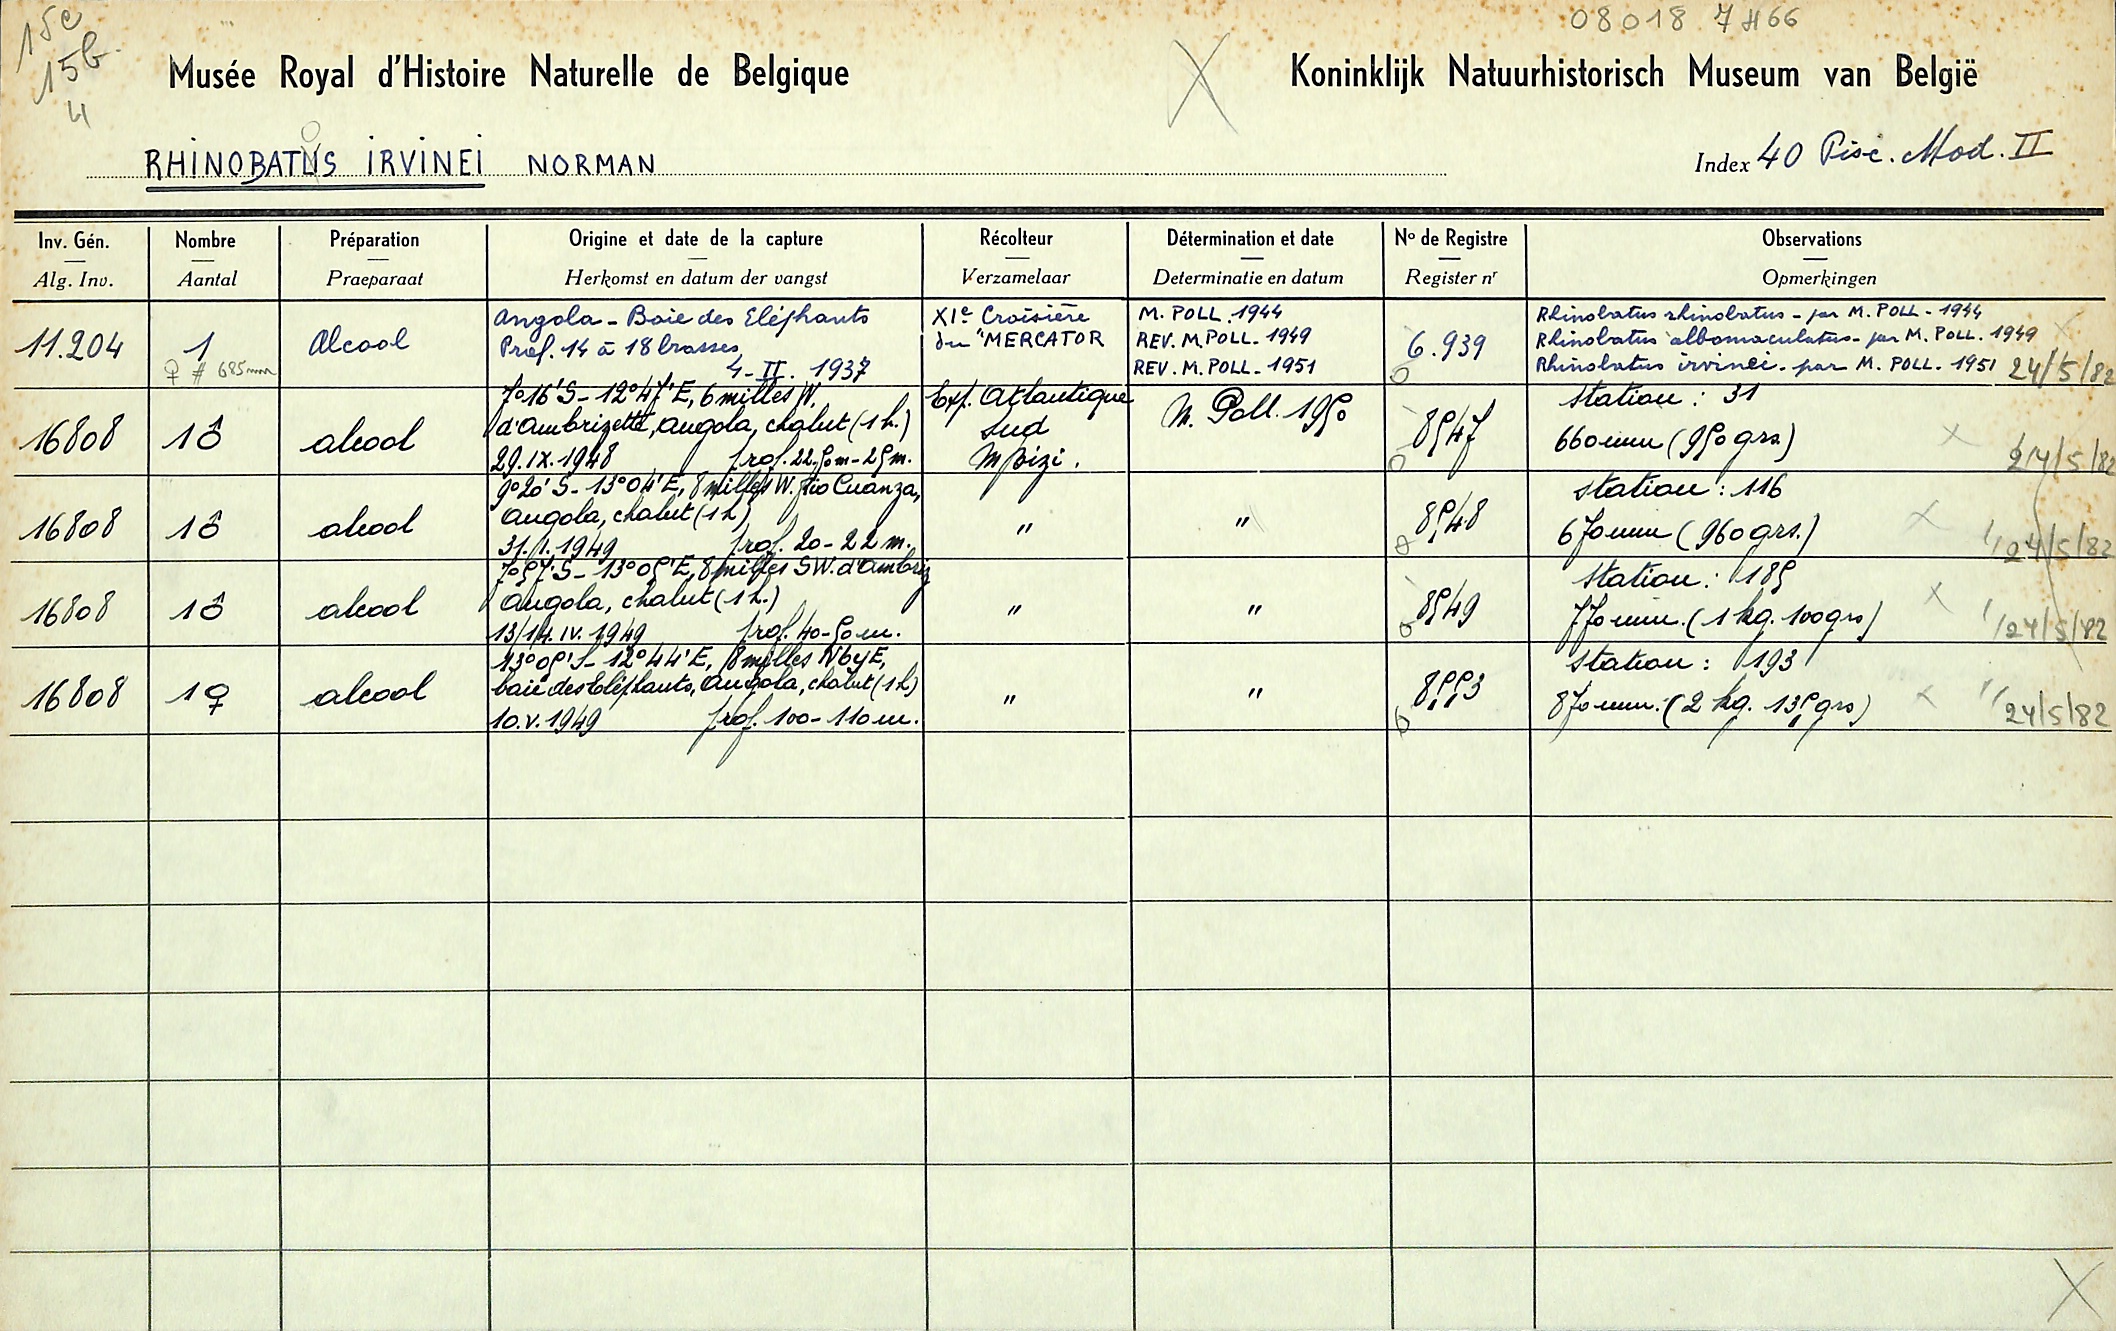 15c
15b
4
08018 7H66
Musée Royal d'Histoire Naturelle de Belgique
Koninklijk Natuurhistorisch Museum van België
RHINOBATUS IRVINEI NORMAN
o
Index 40 Pisc. Mod. II
Inv. Gén. Nombre Préparation Origine et date de la capture Récolteur Détermination et date No de Registre Observations
Alg. Inv. Aantal Praeparaat Herkomst en datum der vangst Verzamelaar Determinatie en datum Register nr Opmerkingen
11.204
1
♀ # 685mm
Alcool
Angola - Baie des Eléphants
Prof. 14 à 18 brasses
4 - II. 1937
XIe Croisière
du "MERCATOR
M. POLL. 1944
REV. M. POLL. 1949
REV. M. POLL. 1951
6.939
Rhinobatus rhinobatus - par M. POLL - 1944
Rhinobatus albomaculatus - par M. POLL. 1949
Rhinobatus irvinei - par M. POLL - 1951 24/5/82
16808
1 ♂
alcool
7°16'S - 12°47'E, 6 milles W.
d'Ambrizette, Angola, chalut (1 h.)
29.IX.1948 prof. 22.50m - 25m.
Exp. Atlantique
Sud
Mbizi.
M. Poll. 1950
8547
station : 31
660 mm (950 grs)
24/5/82
16808
1 ♂
alcool
9°20'S - 13°04'E, 8 milles W. Rio Cuanza,
Angola, chalut (1 h)
31.I.1949 prof. 20 - 22 m.
"
"
8548
station : 116
670 mm (960 grs.)
24/5/82
16808
1 ♂
alcool
7°57'S - 13°05'E, 8 milles SW. d'Ambriz
Angola, chalut (1 h.)
13/14.IV.1949 prof. 40 - 50 m.
"
"
8549
station : 185
770 mm. (1 kg. 100 grs)
24/5/82
16808
1 ♀
alcool
13°05'S - 12°44'E, 8 milles NbyE,
baie des Eléphants, Angola, chalut (1 h)
10.V.1949 prof. 100 - 110 m.
"
"
8553
station : 193
870 mm. (2 kg. 135 grs)
24/5/82